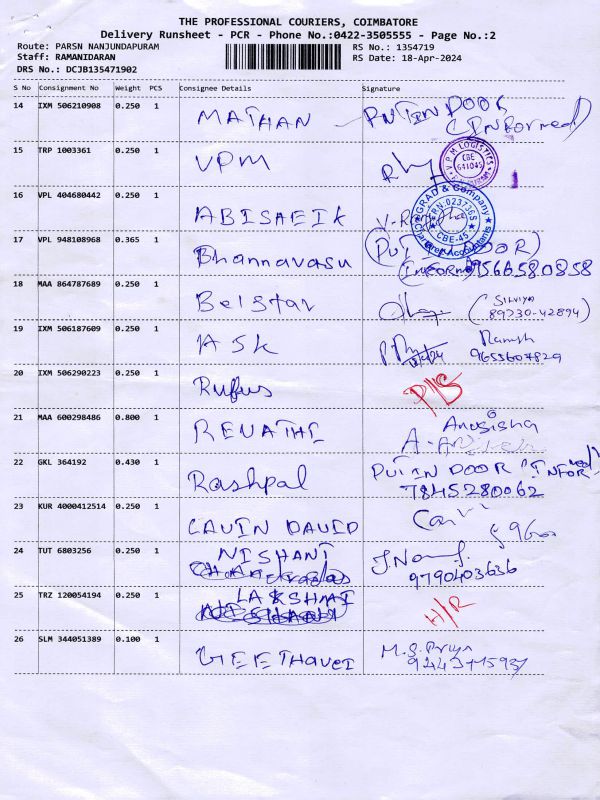 THE PROFESSIONAL COURIERS, COIMBATORE
Delivery Runsheet - PCR - Phone No.:0422-3505555 - Page No.:2
Route: PARSN NANJUNDAPURAM
RS No.: 1354719
Staff: RAMANIDARAN
RS Date: 18-Apr-2024
DRS No.: DCJB135471902
S No Consignment No Weight PCS Consignee Details Signature
14 IXM 506210908 0.250 1 MATHAN PUT IN DOOR
(Informed)
15 TRP 1003361 0.250 1 VPM
VPM LOGISTICS
CBE
641045
16 VPL 404680442 0.250 1 ABISHEIK
& Company
FRN:023736S
CBE-45
Chartered Accountants
17 VPL 948108968 0.365 1 Bhannavasu (PUT IN DOOR)
(INFORM) 9566580858
18 MAA 864787689 0.250 1 Belstar
89730-42894)
19 IXM 506187609 0.250 1 ASK Ramesh
9653607829
20 IXM 506290223 0.250 1 Rufus D/B
21 MAA 600298486 0.800 1 RENATHI Anusisha
22 GKL 364192 0.430 1 Rashpal PUT IN DOOR "INFORMED"
7845280062
23 KUR 4000412514 0.250 1 CAVIN DAVID
24 TUT 6803256 0.250 1 NISHANT
9790403636
25 TRZ 120054194 0.250 1 LAKSHMI H/R
26 SLM 344051389 0.100 1 GEETHAVEI M.S. Priya